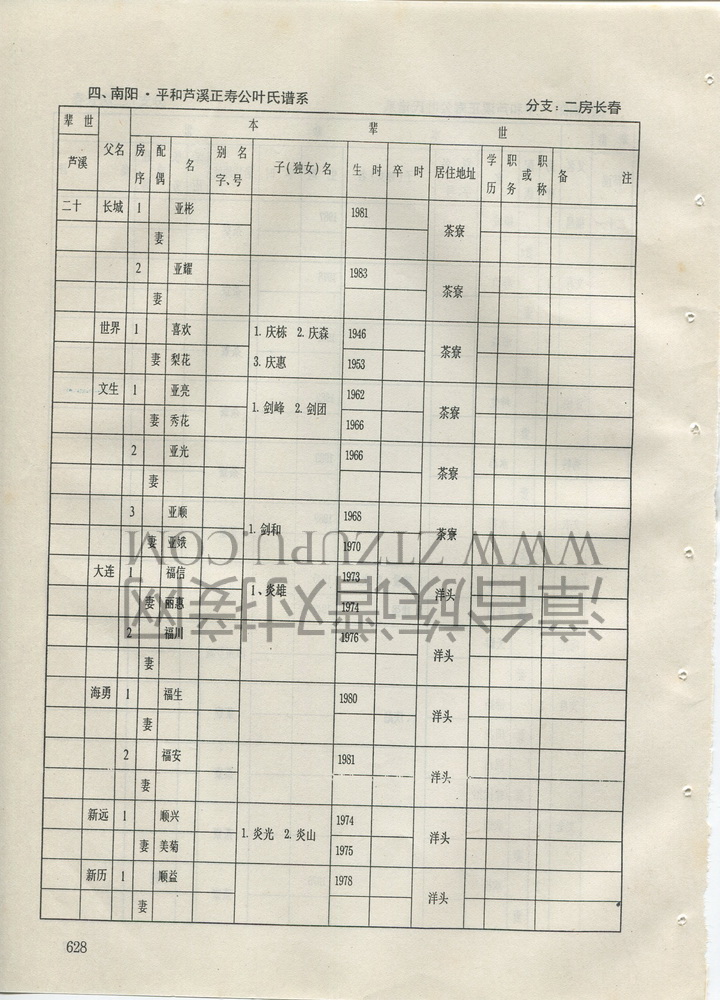 四、南阳·平和芦溪正寿公叶氏谱系 分支：二房长春
辈世 父名 本辈世
芦溪 房序 配偶 名 别名字、号 子(独女)名 生时 卒时 居住地址 学历 职务或职称 备注
二十 长城 1 亚彬 1981 茶寮
妻
2 亚耀 1983 茶寮
妻
世界 1 喜欢 1.庆栋 2.庆森 1946 茶寮
妻 梨花 3.庆惠 1953
文生 1 亚亮 1.剑峰 2.剑团 1962 茶寮
妻 秀花 1966
2 亚光 1966 茶寮
妻
3 亚顺 1.剑和 1968 茶寮
妻 亚娥 1970
大连 1 福信 1、炎雄 1973 洋头
妻 丽惠 1974
2 福川 1976 洋头
妻
海勇 1 福生 1980 洋头
妻
2 福安 1981 洋头
妻
新远 1 顺兴 1.炎光 2.炎山 1974 洋头
妻 美菊 1975
新历 1 顺益 1978 洋头
妻
628
漳台族谱对接网
WWW.ZTZUPU.COM